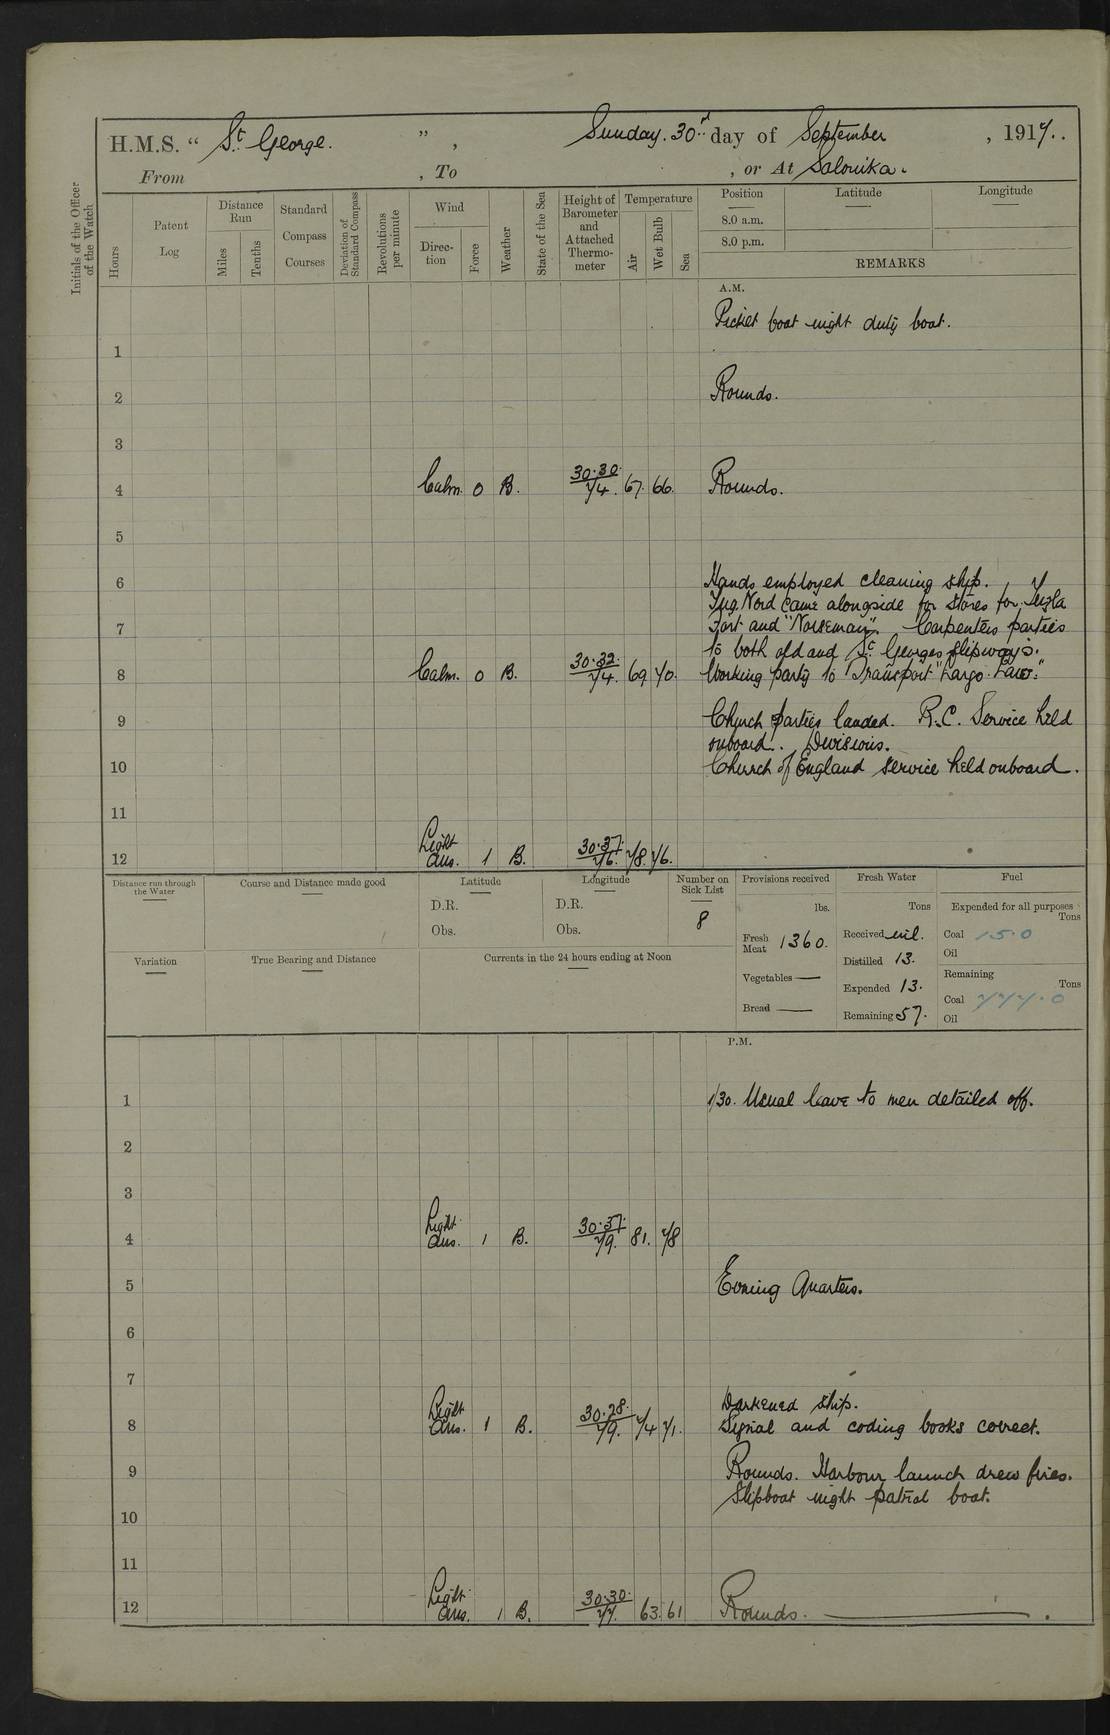 H.M.S. “ St George. ” , Sunday. 30th day of September , 1917..
From , To , or At Salonika.
Initials of the Officer of the Watch
Hours
Patent Log
Distance Run
Miles
Tenths
Standard Compass Courses
Deviation of Standard Compass
Revolutions per minute
Wind
Direc-tion
Force
Weather
State of the Sea
Height of Barometer and Attached Thermo-meter
Temperature
Air
Wet Bulb
Sea
Position Latitude Longitude
8.0 a.m.
8.0 p.m.
REMARKS
A.M.
Picket boat night duty boat.
1
2 Rounds.
3
4 Calm. 0 B. 30.30. 74. 67. 66. Rounds.
5
6 Hands employed cleaning ship.
Tug Nord came alongside for stores for Tuzla
7 Fort and "Norseman". Carpenters parties
to both old and St. Georges slipways.
8 Calm. 0 B. 30.32. 74. 69 70. Working party to Transport "Largo Law."
9 Church parties landed. R.C. Service held
onboard. Divisions.
10 Church of England service held onboard.
11
12 Light airs. 1 B. 30.37. 76. 78. 76.
Distance run through the Water
Course and Distance made good
Latitude
D.R.
Obs.
Longitude
D.R.
Obs.
Number on Sick List
8
Provisions received
lbs.
Fresh Meat 1360.
Vegetables —
Bread —
Fresh Water
Tons
Received nil.
Distilled 13.
Expended 13.
Remaining 57.
Fuel
Expended for all purposes
Tons
Coal 15.0
Oil
Remaining
Tons
Coal 777.0
Oil
Variation
True Bearing and Distance
Currents in the 24 hours ending at Noon
P.M.
1 1/30. Usual leave to men detailed off.
2
3
4 Light airs. 1 B. 30.37. 79. 81. 78
5 Evening Quarters.
6
7
Darkened ship.
8 Light airs. 1 B. 30.28. 79. 74 71. Signal and coding books correct.
9 Rounds. Harbour launch drew fires.
Slipboat night patrol boat.
10
11
12 Light airs. 1 B. 30.30. 77. 63. 61 Rounds.